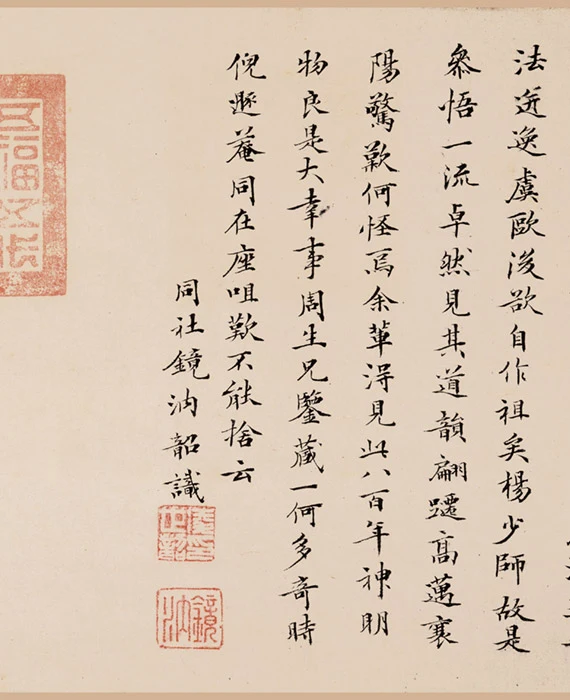 法迸逸虞歐後欲自作祖矣楊少師故是
叅悟一流卓然見其道韻翩躚高邁襄
陽驚歎何怪焉余輩淂見此八百年神明
物良是大幸事周生兄鑒藏一何多奇時
倪遯菴同在座咀歎不能捨云
同社鏡汭韶識
鏡汭
五福五代